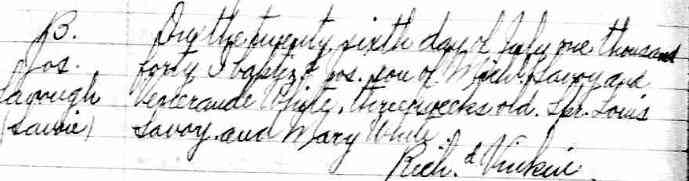 B.
Jos.
Savough
(Savoie)
On the twenty sixth day of July one thousand
forty I baptz.d Jos. son of Mich.l Savoy and
Venerande White, three weeks old. Spr. Louis
Savoy and Mary White
Rich.d